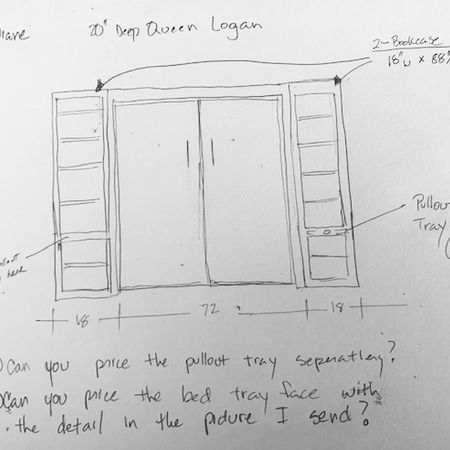 20" Deep Queen Logan
2- Bookcase
18"W x 88"
Pullout
Tray
here
18
72
18
Can you price the pullout tray seperatley?
Can you price the bed tray face with
the detail in the picture I send?